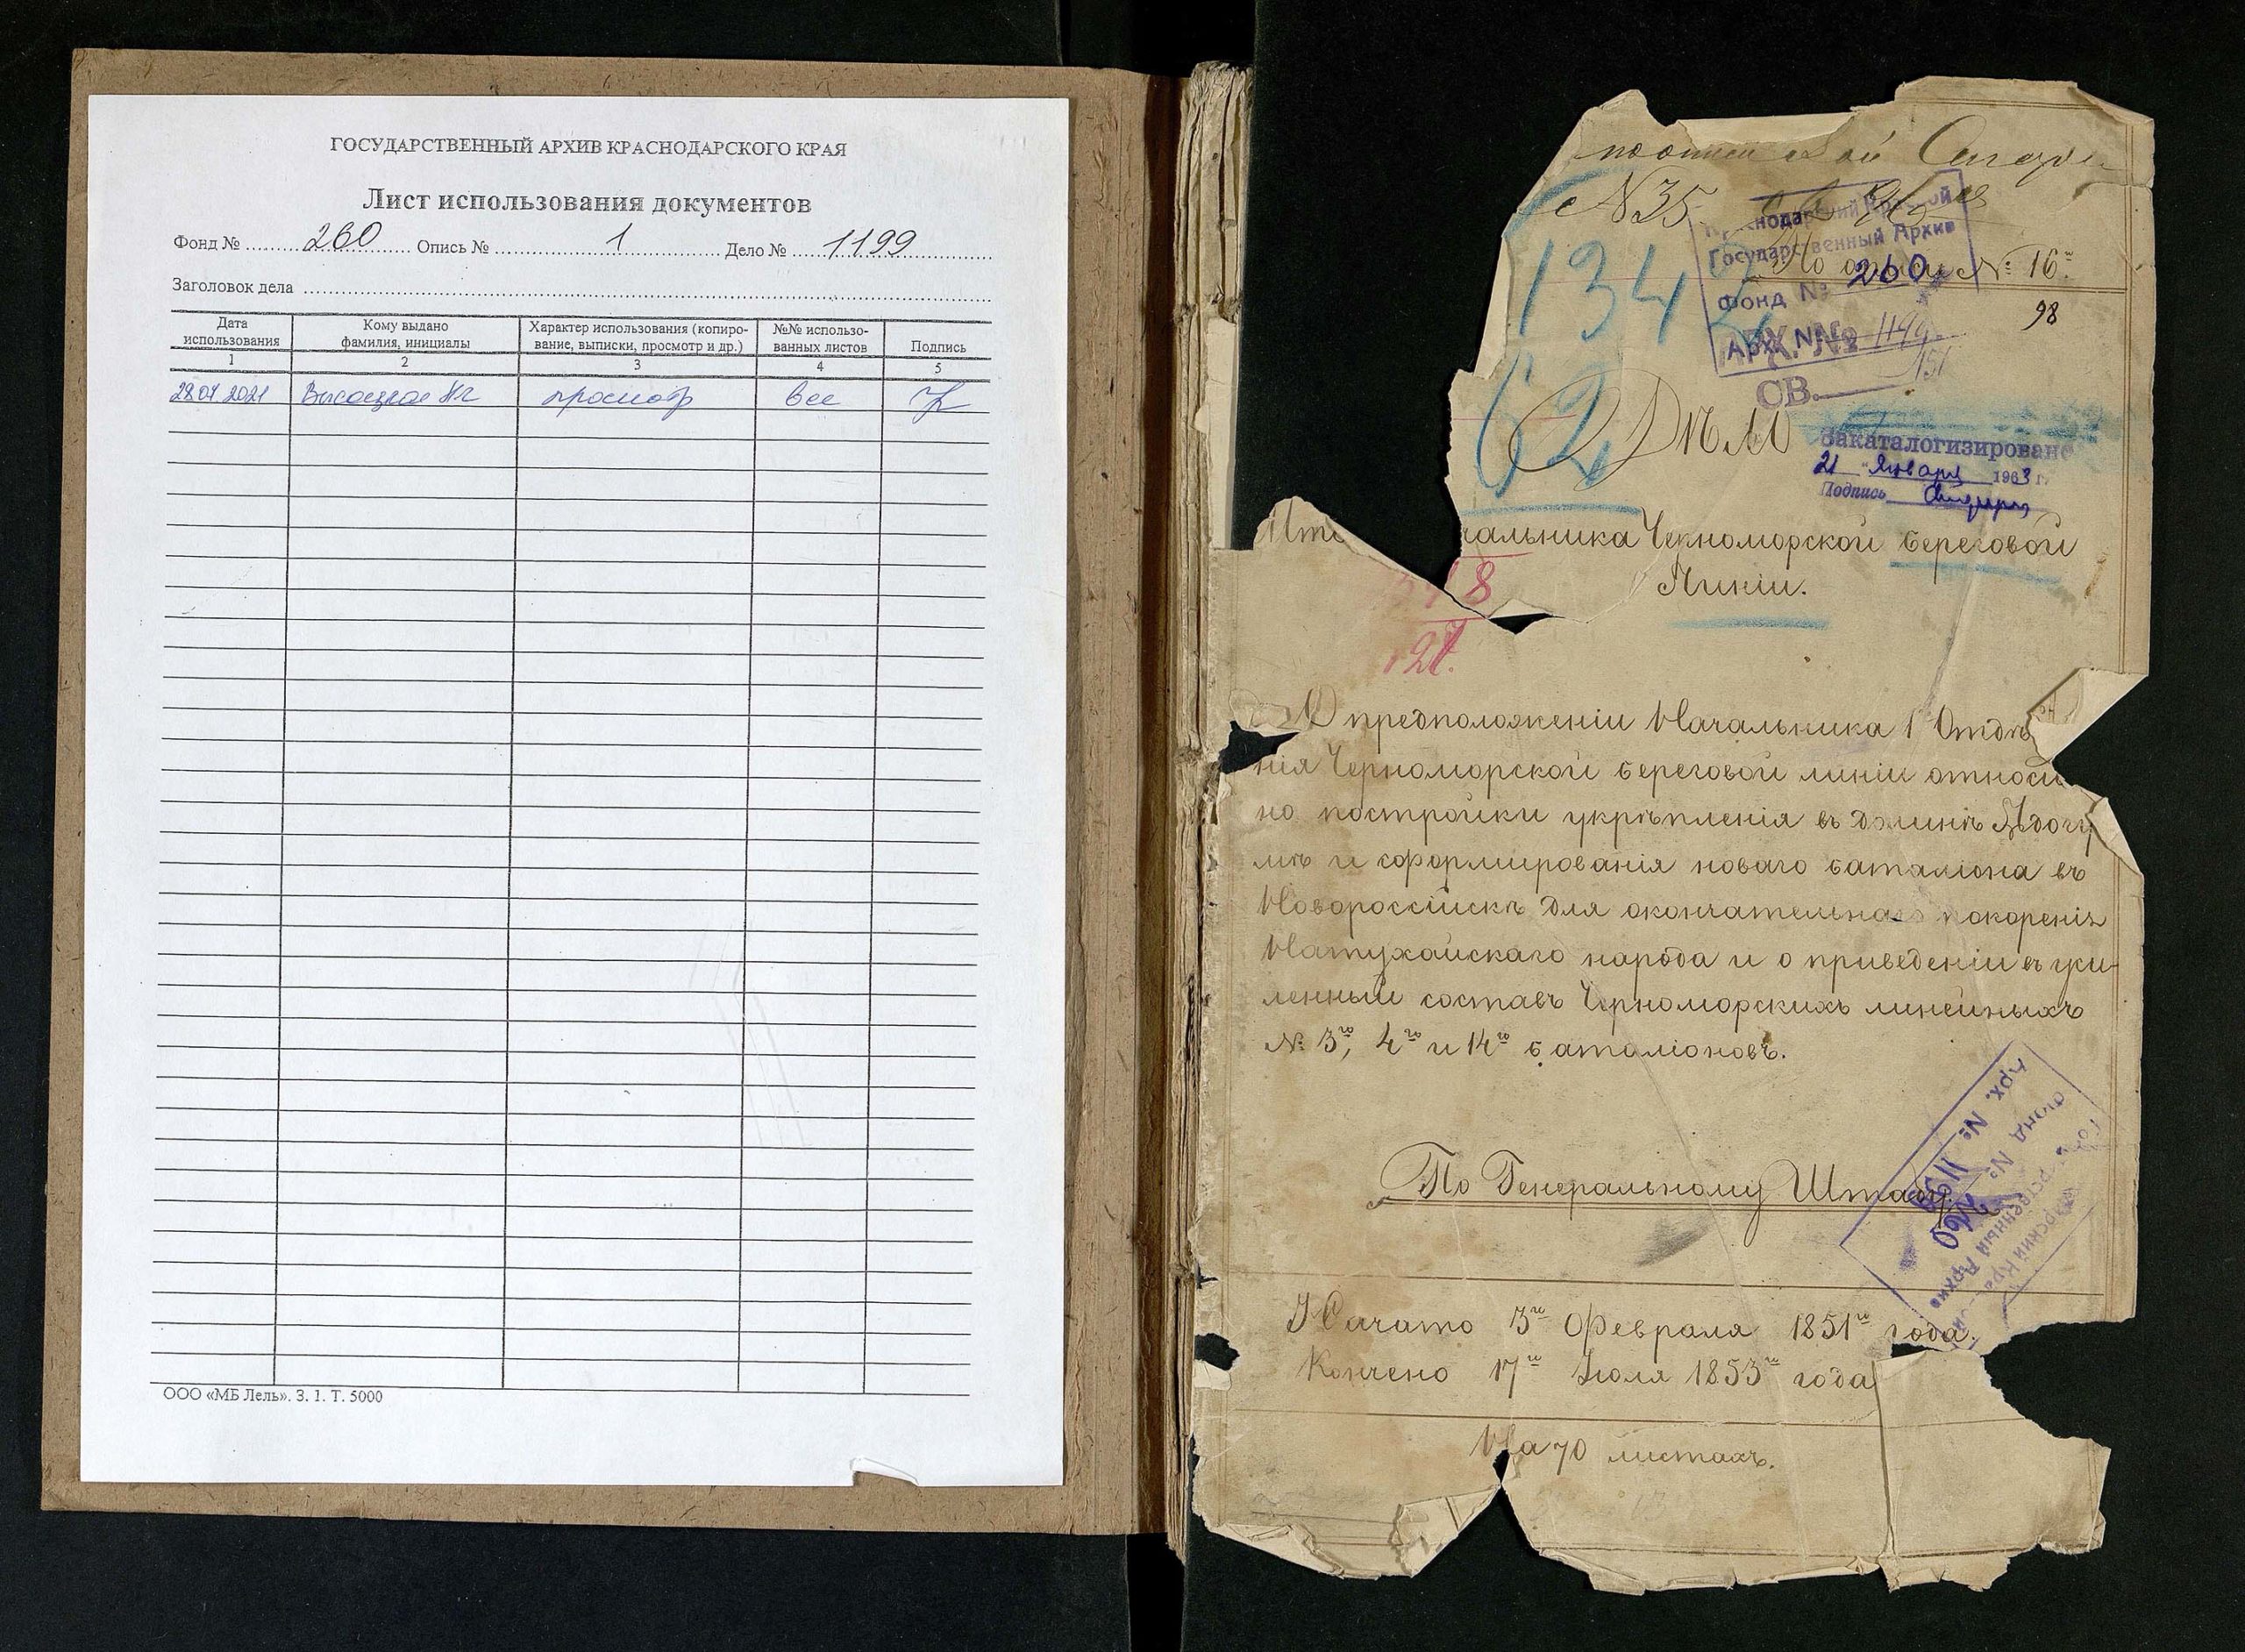 ГОСУДАРСТВЕННЫЙ АРХИВ КРАСНОДАРСКОГО КРАЯ
Лист использования документов
Фонд № 260 Опись № 1 Дело № 1199
Заголовок дела
Дата использования
Кому выдано фамилия, инициалы
Характер использования (копиро-
вание, выписки, просмотр и др.)
№№ использо-
ванных листов
Подпись
1 2 3 4 5
29.07.2021 просмотр все
ООО «МБ Лель». З. 1. Т. 5000
№35
По описи № 16.
98
Государственный Архив
Фонд № 260
Арх. № 1199
СВ.
134
62
Дѣло
Закаталогизировано
21 января 1963 г.
Подпись
чальника Черноморской береговой
Линіи.
8
127.
О предположеніи Начальника 1 Отдѣ
нія Черноморской береговой линіи относи
но постройки укрѣпленія въ долинѣ
мѣ и сформированія новаго баталіона въ
Новороссійскѣ для окончательнаго покоренія
Натухайскаго народа и о приведеніи въ уси-
ленный составъ Черноморскихъ линейныхъ
№ 3го, 4го и 14го баталіоновъ.
По Генеральному Штабу.
Арх. № 1199
Фонд № 260
Начато 3го Февраля 1851го года.
Кончено 17го Іюля 1853го года
На 70 листахъ.